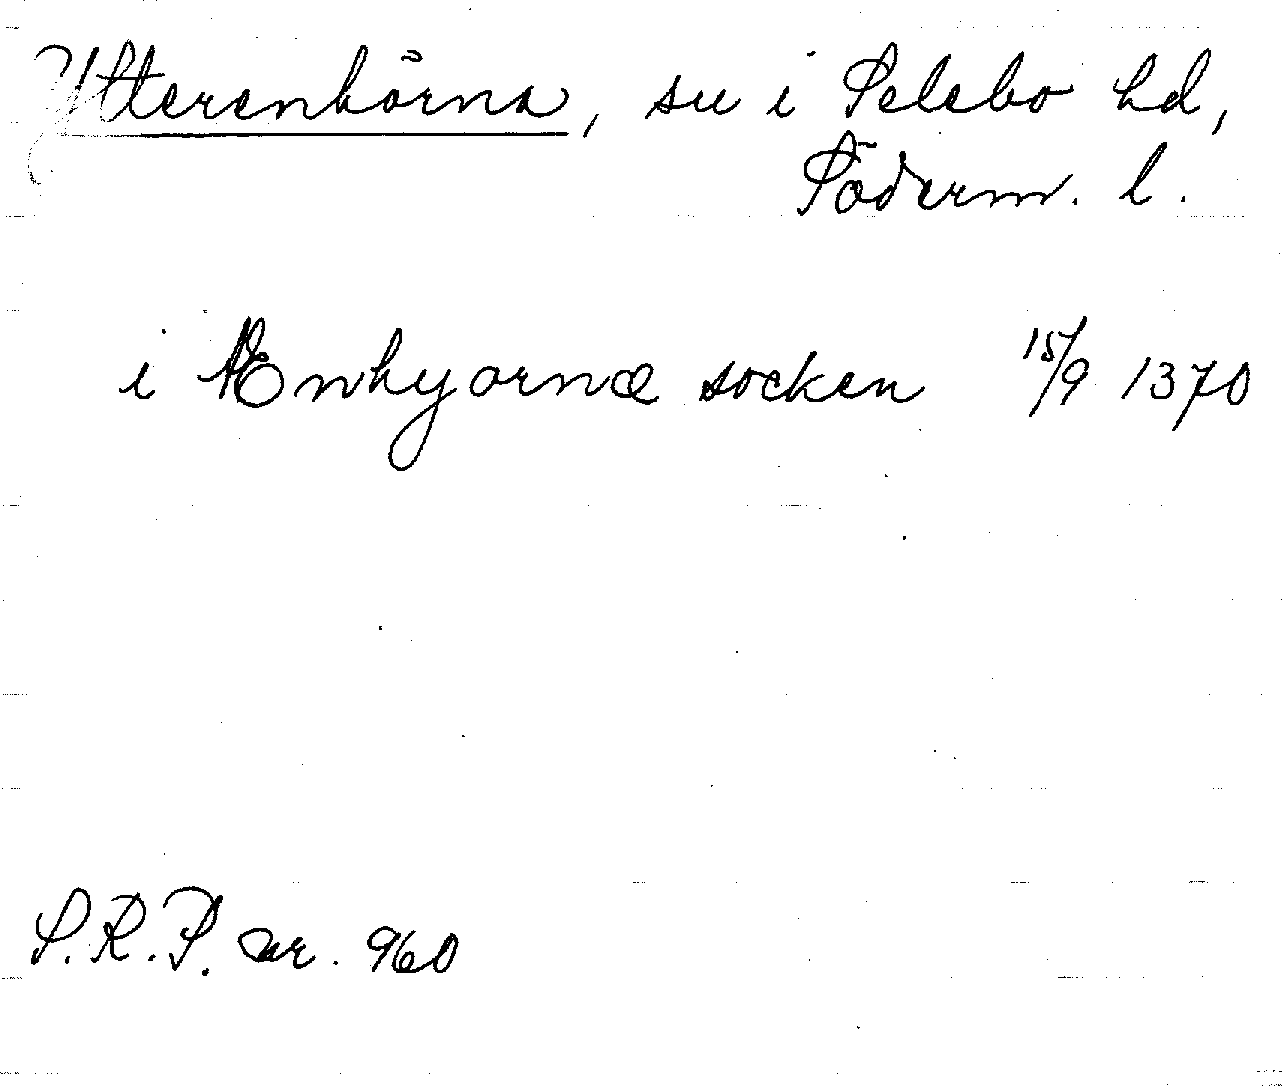 Ytterenhörna, su i Selebo hd,
Söderm. l.
i Enhyornæ socken 15/9 1370
S.R.P. nr. 960